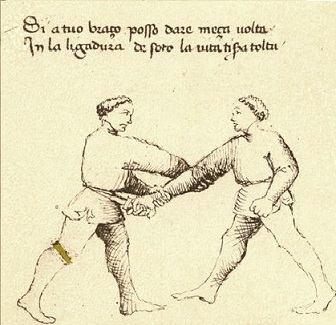 Si a tuo braço posso dare meça volta
In la ligadura de soto la vita ti fia tolta